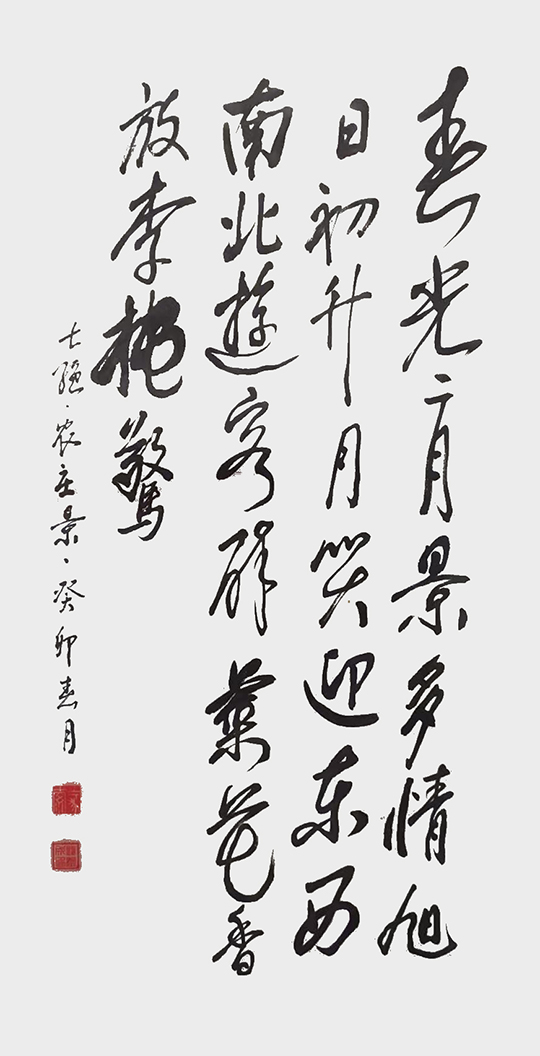 春光二月景多情旭
日初升月笑迎东西
南北遊客醉菜花香
放李桃驚
农庄景、癸卯春月